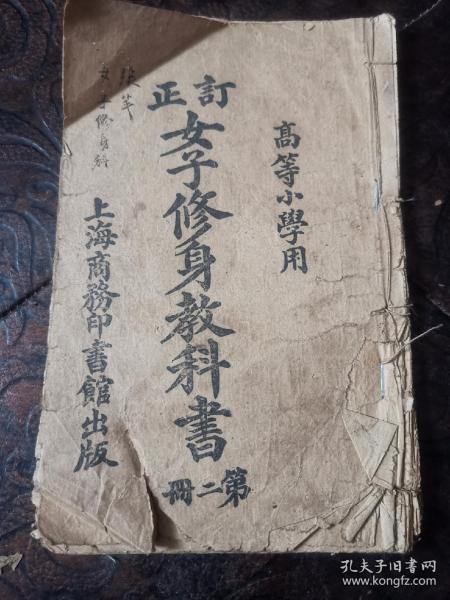 高等小學用
訂正
女子修身教科書
第二冊
上海商務印書館出版
女子修身科
孔夫子旧书网
www.kongfz.com